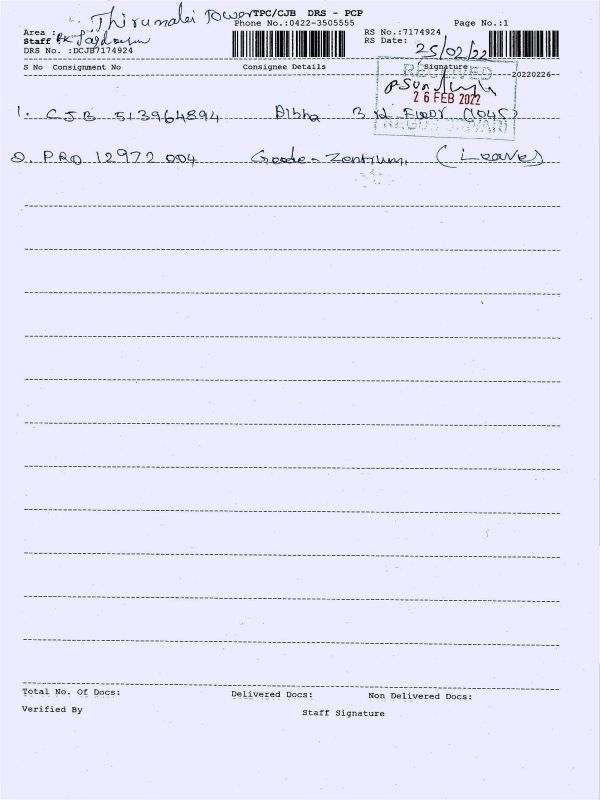 Thirumalai Tower TPC/CJB DRS - PCP
Phone No.:0422-3505555
Page No.:1
Area :
Staff :
DRS No. :DCJB7174924
RS No.:7174924
RS Date: 25/02/22
S No Consignment No Consignee Details Signature 20220226
RECEIVED
26 FEB 2022
1. CJB 513964894 Bibha 3rd Floor (1045)
2. PRO 12972004 Goode-Zentrum, (Leave)
Total No. Of Docs: Delivered Docs: Non Delivered Docs:
Verified By Staff Signature